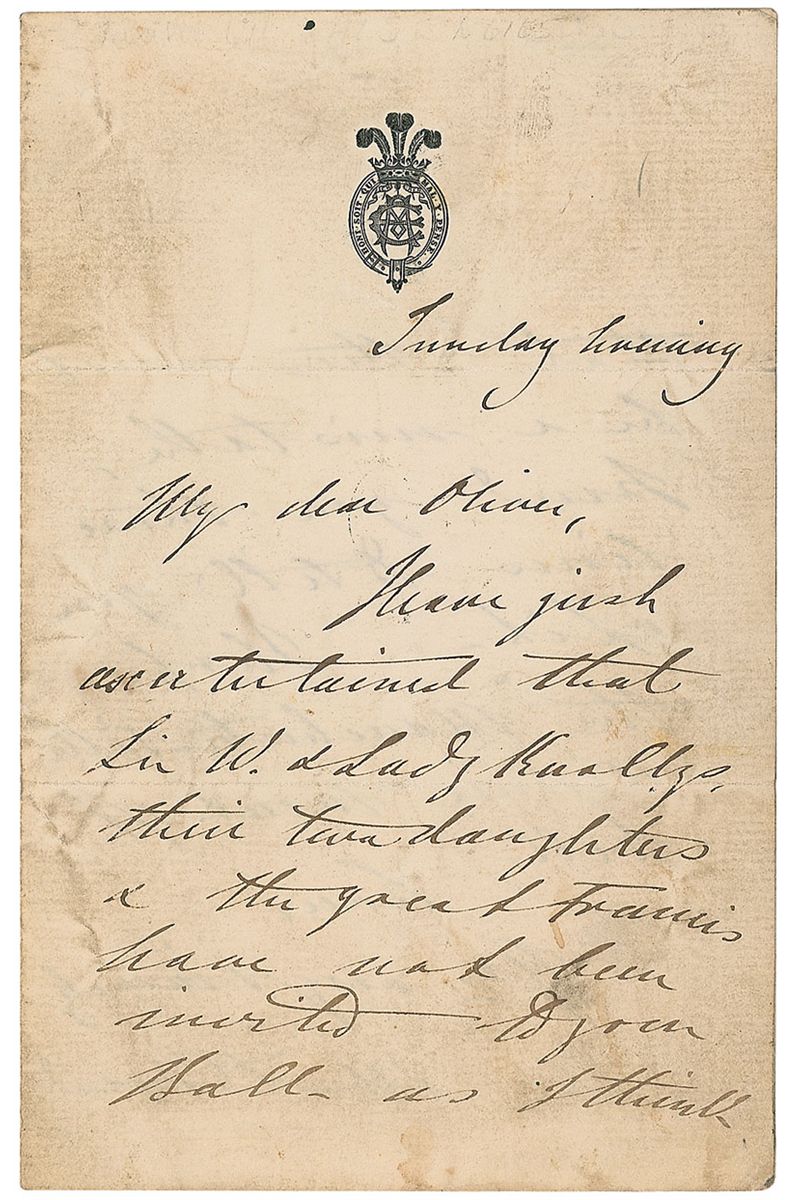 HONI · SOIT · QUI MAL · Y · PENSE
Sunday Evening
My dear Oliver,
I have just
ascertertained that
Sir W. & Lady Knollys,
their two daughters
& the great Francis
have not been
invited to your
Ball – as I think